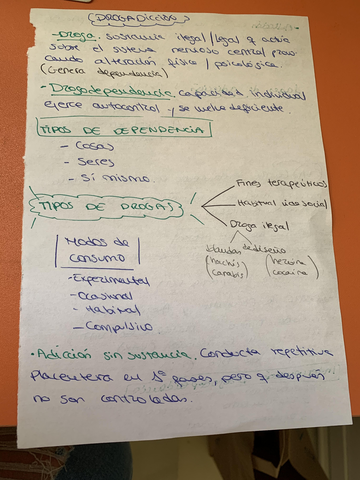 DROGADICCIÓN
- Droga. sustancia ilegal/legal q actúa
sobre el sistema nervioso central provo
cando alteración física/psicológica.
(Genera dependencia)
- Drogodependencia. capacidad individual
ejerce autocontrol y se vuelve deficiente.
TIPOS DE DEPENDENCIA
- Cosas
- Seres
- Sí mismo.
TIPOS DE DROGAS
Fines terapeúticos
Habitual uso social
Droga ilegal
blandas de diseño
(hachís, (heroína
canabis) cocaína)
Modos de
consumo
- Experimental
- Ocasional
- Habitual
- Compulsivo
• Adicción sin sustancia. Conducta repetitiva
placentera en 1ª fases, pero q después
no son controladas.